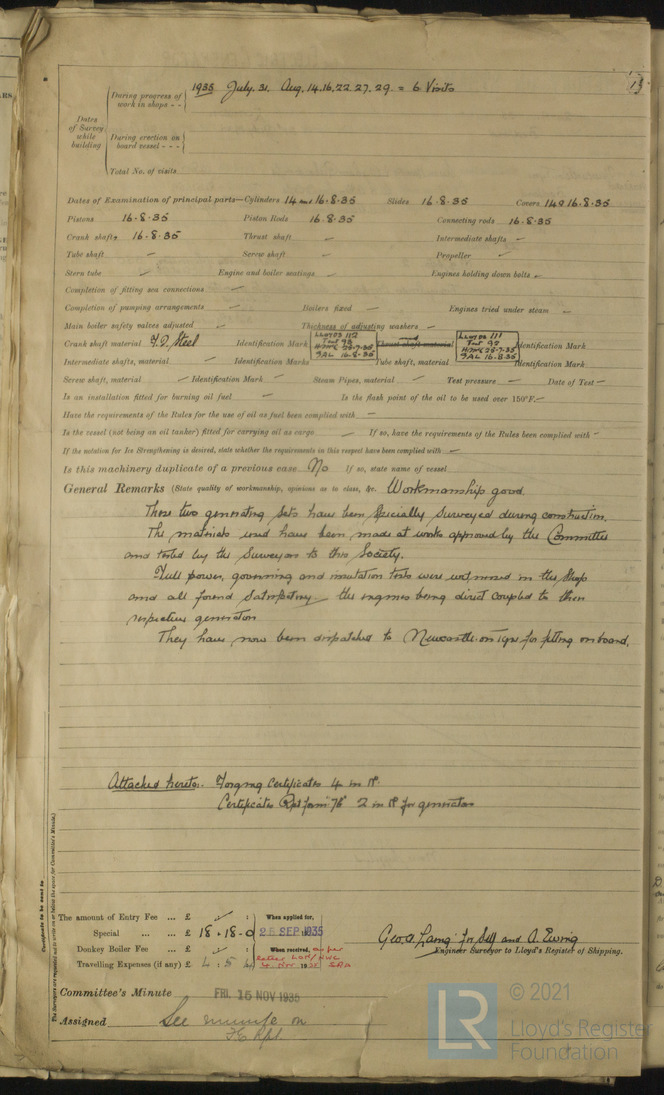 13
Dates of Survey while building
During progress of work in shops - - 1935 July. 31. Aug. 14. 16. 22. 27. 29. = 6 Visits
During erection on board vessel - - -
Total No. of visits
Dates of Examination of principal parts—Cylinders 14 and 16-8-35 Slides 16.8.35 Covers 14 & 16.8.35
Pistons 16.8.35 Piston Rods 16.8.35 Connecting rods 16.8.35
Crank shafts 16.8.35 Thrust shaft – Intermediate shafts –
Tube shaft – Screw shaft – Propeller –
Stern tube – Engine and boiler seatings – Engines holding down bolts –
Completion of fitting sea connections –
Completion of pumping arrangements – Boilers fixed – Engines tried under steam –
Main boiler safety valves adjusted – Thickness of adjusting washers –
Crank shaft material Steel Identification Mark LLOYDS 112 Test 98 16.8.35 Thrust shaft material LLOYDS 111 Test 98 16.8.35 Identification Mark
Intermediate shafts, material – Identification Marks Tube shaft, material Identification Mark
Screw shaft, material – Identification Mark – Steam Pipes, material – Test pressure – Date of Test –
Is an installation fitted for burning oil fuel – Is the flash point of the oil to be used over 150°F. –
Have the requirements of the Rules for the use of oil as fuel been complied with –
Is the vessel (not being an oil tanker) fitted for carrying oil as cargo – If so, have the requirements of the Rules been complied with –
If the notation for Ice Strengthening is desired, state whether the requirements in this respect have been complied with –
Is this machinery duplicate of a previous case No If so, state name of vessel
General Remarks (State quality of workmanship, opinions as to class, &c. Workmanship good.
These two generating sets have been specially surveyed during construction.
The materials used have been made at works approved by the Committee
and tested by the Surveyors to this Society.
Full power, governing and tests were in the Shop
and all found satisfactory the engines being direct coupled to their
respective generators
They have now been dispatched to Newcastle-on-Tyne for fitting on board.
Attached hereto. Forging Certificates 4 in No.
Certificates Rpt form 2 in No. for generators
Certificate to be sent to
(The Surveyors are requested not to write on or below the space for Committee's Minute.)
The amount of Entry Fee ... £ – : When applied for,
Special ... ... £ 18 . 18 . 0 28 SEP 1935
Donkey Boiler Fee ... £ When received, as per
Travelling Expenses (if any) £ 4 : 5 letter
Geo. A. Laing for Self and A. Ewing
Engineer Surveyor to Lloyd's Register of Shipping.
Committee's Minute FRI. 15 NOV 1935
Assigned See minute on
F.E. Rpt
LR © 2021
Lloyd's Register
Foundation